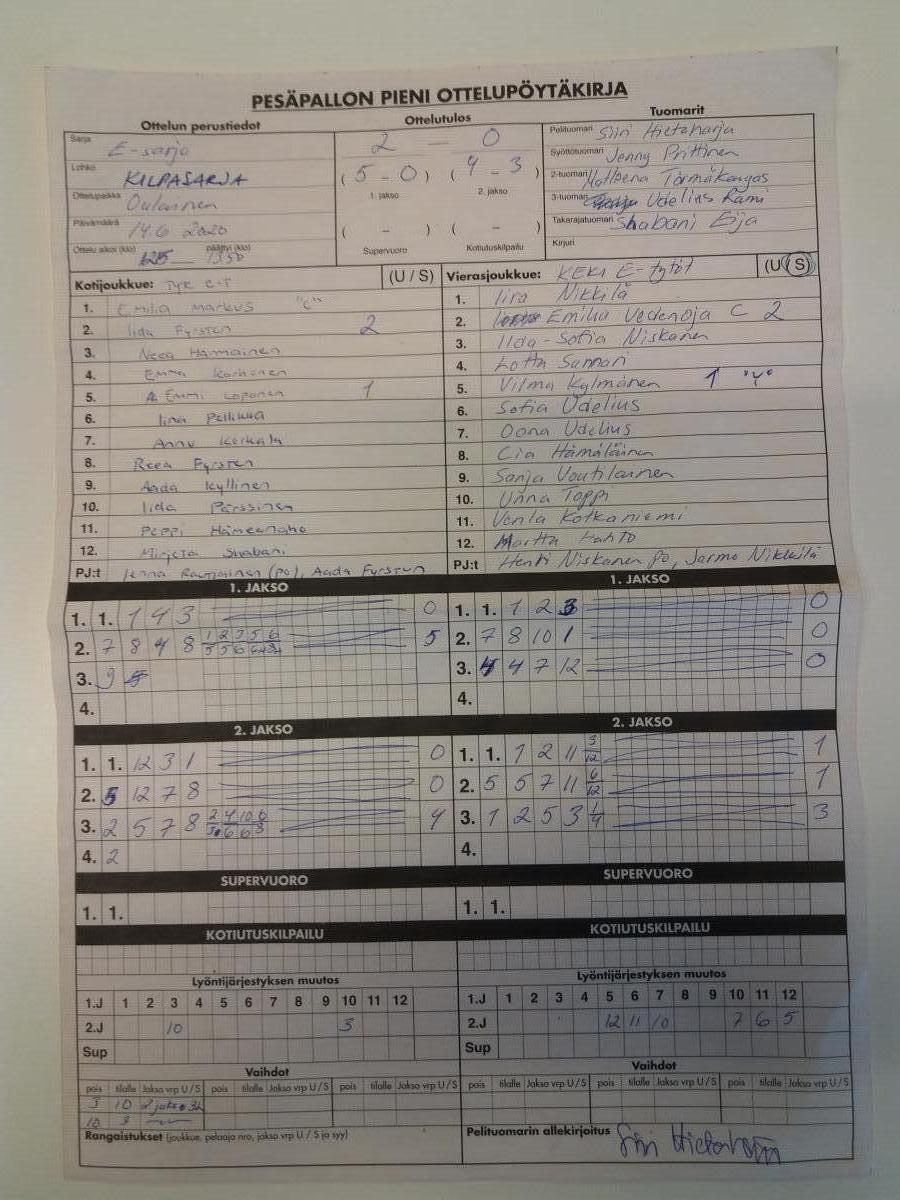 PESÄPALLON PIENI OTTELUPÖYTÄKIRJA
Ottelun perustiedot Ottelutulos Tuomarit
Sarja E-sarja
Lohko KILPASARJA
Ottelupaikka Oulainen
Päivämäärä 14.6 2020
Ottelu alkoi (klo) päättyi (klo) 1350
2 — 0
( 5 - 0 ) ( 4 - 3 )
1. jakso 2. jakso
( – ) ( – )
Supervuoro Kotiutuskilpailu
Pelituomari Siiri Hietaharja
Syöttötuomari Jenny Prittinen
2-tuomari Törmäkangas
3-tuomari Udelius Rami
Takarajatuomari Shabani Eija
Kirjuri
Kotijoukkue: (U / S)
1. Emilia Markus "C"
2. Iida Fyrsten 2
3. Neea Hannainen
4. Emma Korhonen
5. Emmi Loponen 1
6. Iina Pellikka
7. Anni Kerkelä
8. Reea Fyrsten
9. Aada Kyllinen
10. Iida Pärssinen
11. Peppi Hämeenaho
12. Mirjeta Shabani
PJ:t Jenna (PJ), Aada Fyrsten
Vierasjoukkue: KEKI E-tytöt (U / S)
1. Iira Nikkilä
2. Emilia Vedenoja C 2
3. Iida-Sofia Niskanen
4. Lotta Sunnari
5. Vilma Kylmänen 1
6. Sofia Udelius
7. Oona Udelius
8. Cia Hämäläinen
9. Sanja Voutilainen
10. Unna Toppi
11. Venla Kotkaniemi
12. Martta Hahto
PJ:t Henri Niskanen PJ, Jarmo Nikkilä
1. JAKSO
1. 1. 1 4 3 0
2. 7 8 4 8 5
3. 9
4.
2. JAKSO
1. 1. 12 3 1 0
2. 5 12 7 8 0
3. 2 5 7 8 4
4. 2
SUPERVUORO
1. 1.
KOTIUTUSKILPAILU
Lyöntijärjestyksen muutos
1.J 1 2 3 4 5 6 7 8 9 10 11 12
2.J 10 3
Sup
Vaihdot
pois tilalle Jakso vrp U / S pois tilalle Jakso vrp U / S pois tilalle Jakso vrp U / S
3 10 2 jakso
10 3
Rangaistukset (joukkue, pelaaja nro, jakso vrp U / S ja syy)
1. JAKSO
1. 1. 1 2 3 0
2. 7 8 10 1 0
3. 4 4 7 12 0
4.
2. JAKSO
1. 1. 1 2 11 3/12 1
2. 5 5 7 11 6/12 1
3. 1 2 5 3 1/4 3
4.
SUPERVUORO
1. 1.
KOTIUTUSKILPAILU
Lyöntijärjestyksen muutos
1.J 1 2 3 4 5 6 7 8 9 10 11 12
2.J 12 11 10 7 6 5
Sup
Vaihdot
pois tilalle Jakso vrp U / S pois tilalle Jakso vrp U / S pois tilalle Jakso vrp U / S
Pelituomarin allekirjoitus Siiri Hietaharja